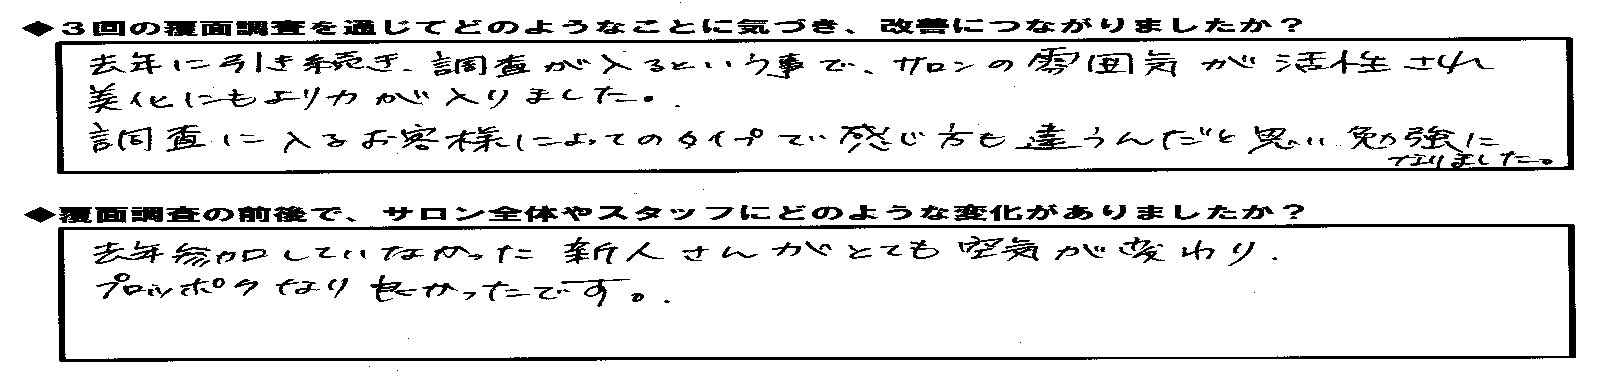 ◆３回の覆面調査を通じてどのようなことに気づき、改善につながりましたか？
去年に引き続き、調査が入るという事で、サロンの雰囲気が活性され
美化にもより力が入りました。
調査に入るお客様によってのタイプで感じ方も違うんだと思い勉強に
なりました。
◆覆面調査の前後で、サロン全体やスタッフにどのような変化がありましたか？
去年参加していなかった新人さんがとても空気が変わり、
プロッポクなり良かったです。